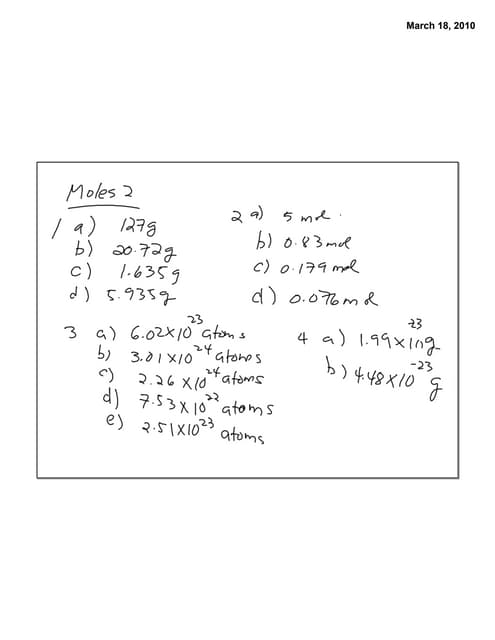 March 18, 2010
Moles 2
1 a) 127g
b) 20.72g
c) 1.635g
d) 5.935g
2 a) 5 mol.
b) 0.83 mol
c) 0.179 mol
d) 0.076 mol
3 a) 6.02X10²³ atoms
b) 3.01X10²⁴ atoms
c) 2.26X10²⁴ atoms
d) 7.53X10²² atoms
e) 2.51X10²³ atoms
4 a) 1.99X10⁻²³ g
b) 4.48X10⁻²³ g